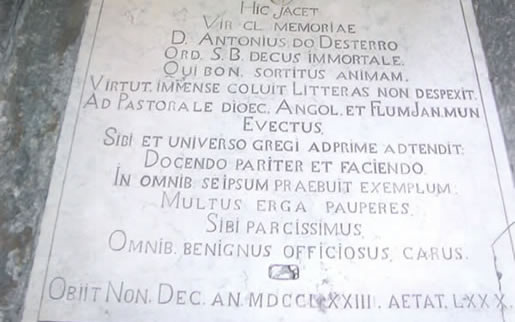 HIC JACET
VIR CL. MEMORIAE
D. ANTONIUS DO DESTERRO
ORD. S. B. DECUS IMMORTALE.
QUI BON. SORTITUS ANIMAM.
VIRTUT. IMMENSE COLUIT LITTERAS NON DESPEXIT.
AD PASTORALE DIOEC. ANGOL. ET FLUM JAN. MUN
EVECTUS,
SIBI ET UNIVERSO GREGI ADPRIME ADTENDIT:
DOCENDO PARITER ET FACIENDO.
IN OMNIB. SEIPSUM PRAEBUIT EXEMPLUM:
MULTUS ERGA PAUPERES,
SIBI PARCISSIMUS,
OMNIB. BENIGNUS OFFICIOSUS, CARUS.
OBIIT NON. DEC. AN. MDCCLXXIII. AETAT. LXXX.